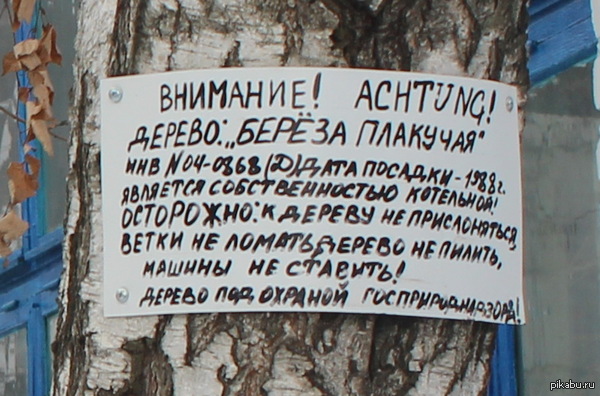 ВНИМАНИЕ! ACHTUNG!
ДЕРЕВО: „БЕРЁЗА ПЛАКУЧАЯ“
ИНВ №04-0868 (Д) ДАТА ПОСАДКИ - 1988 г.
ЯВЛЯЕТСЯ СОБСТВЕННОСТЬЮ КОТЕЛЬНОЙ!
ОСТОРОЖНО: К ДЕРЕВУ НЕ ПРИСЛОНЯТЬСЯ,
ВЕТКИ НЕ ЛОМАТЬ, ДЕРЕВО НЕ ПИЛИТЬ,
МАШИНЫ НЕ СТАВИТЬ!
ДЕРЕВО ПОД ОХРАНОЙ ГОСПРИРОДНАДЗОРА!
pikabu.ru